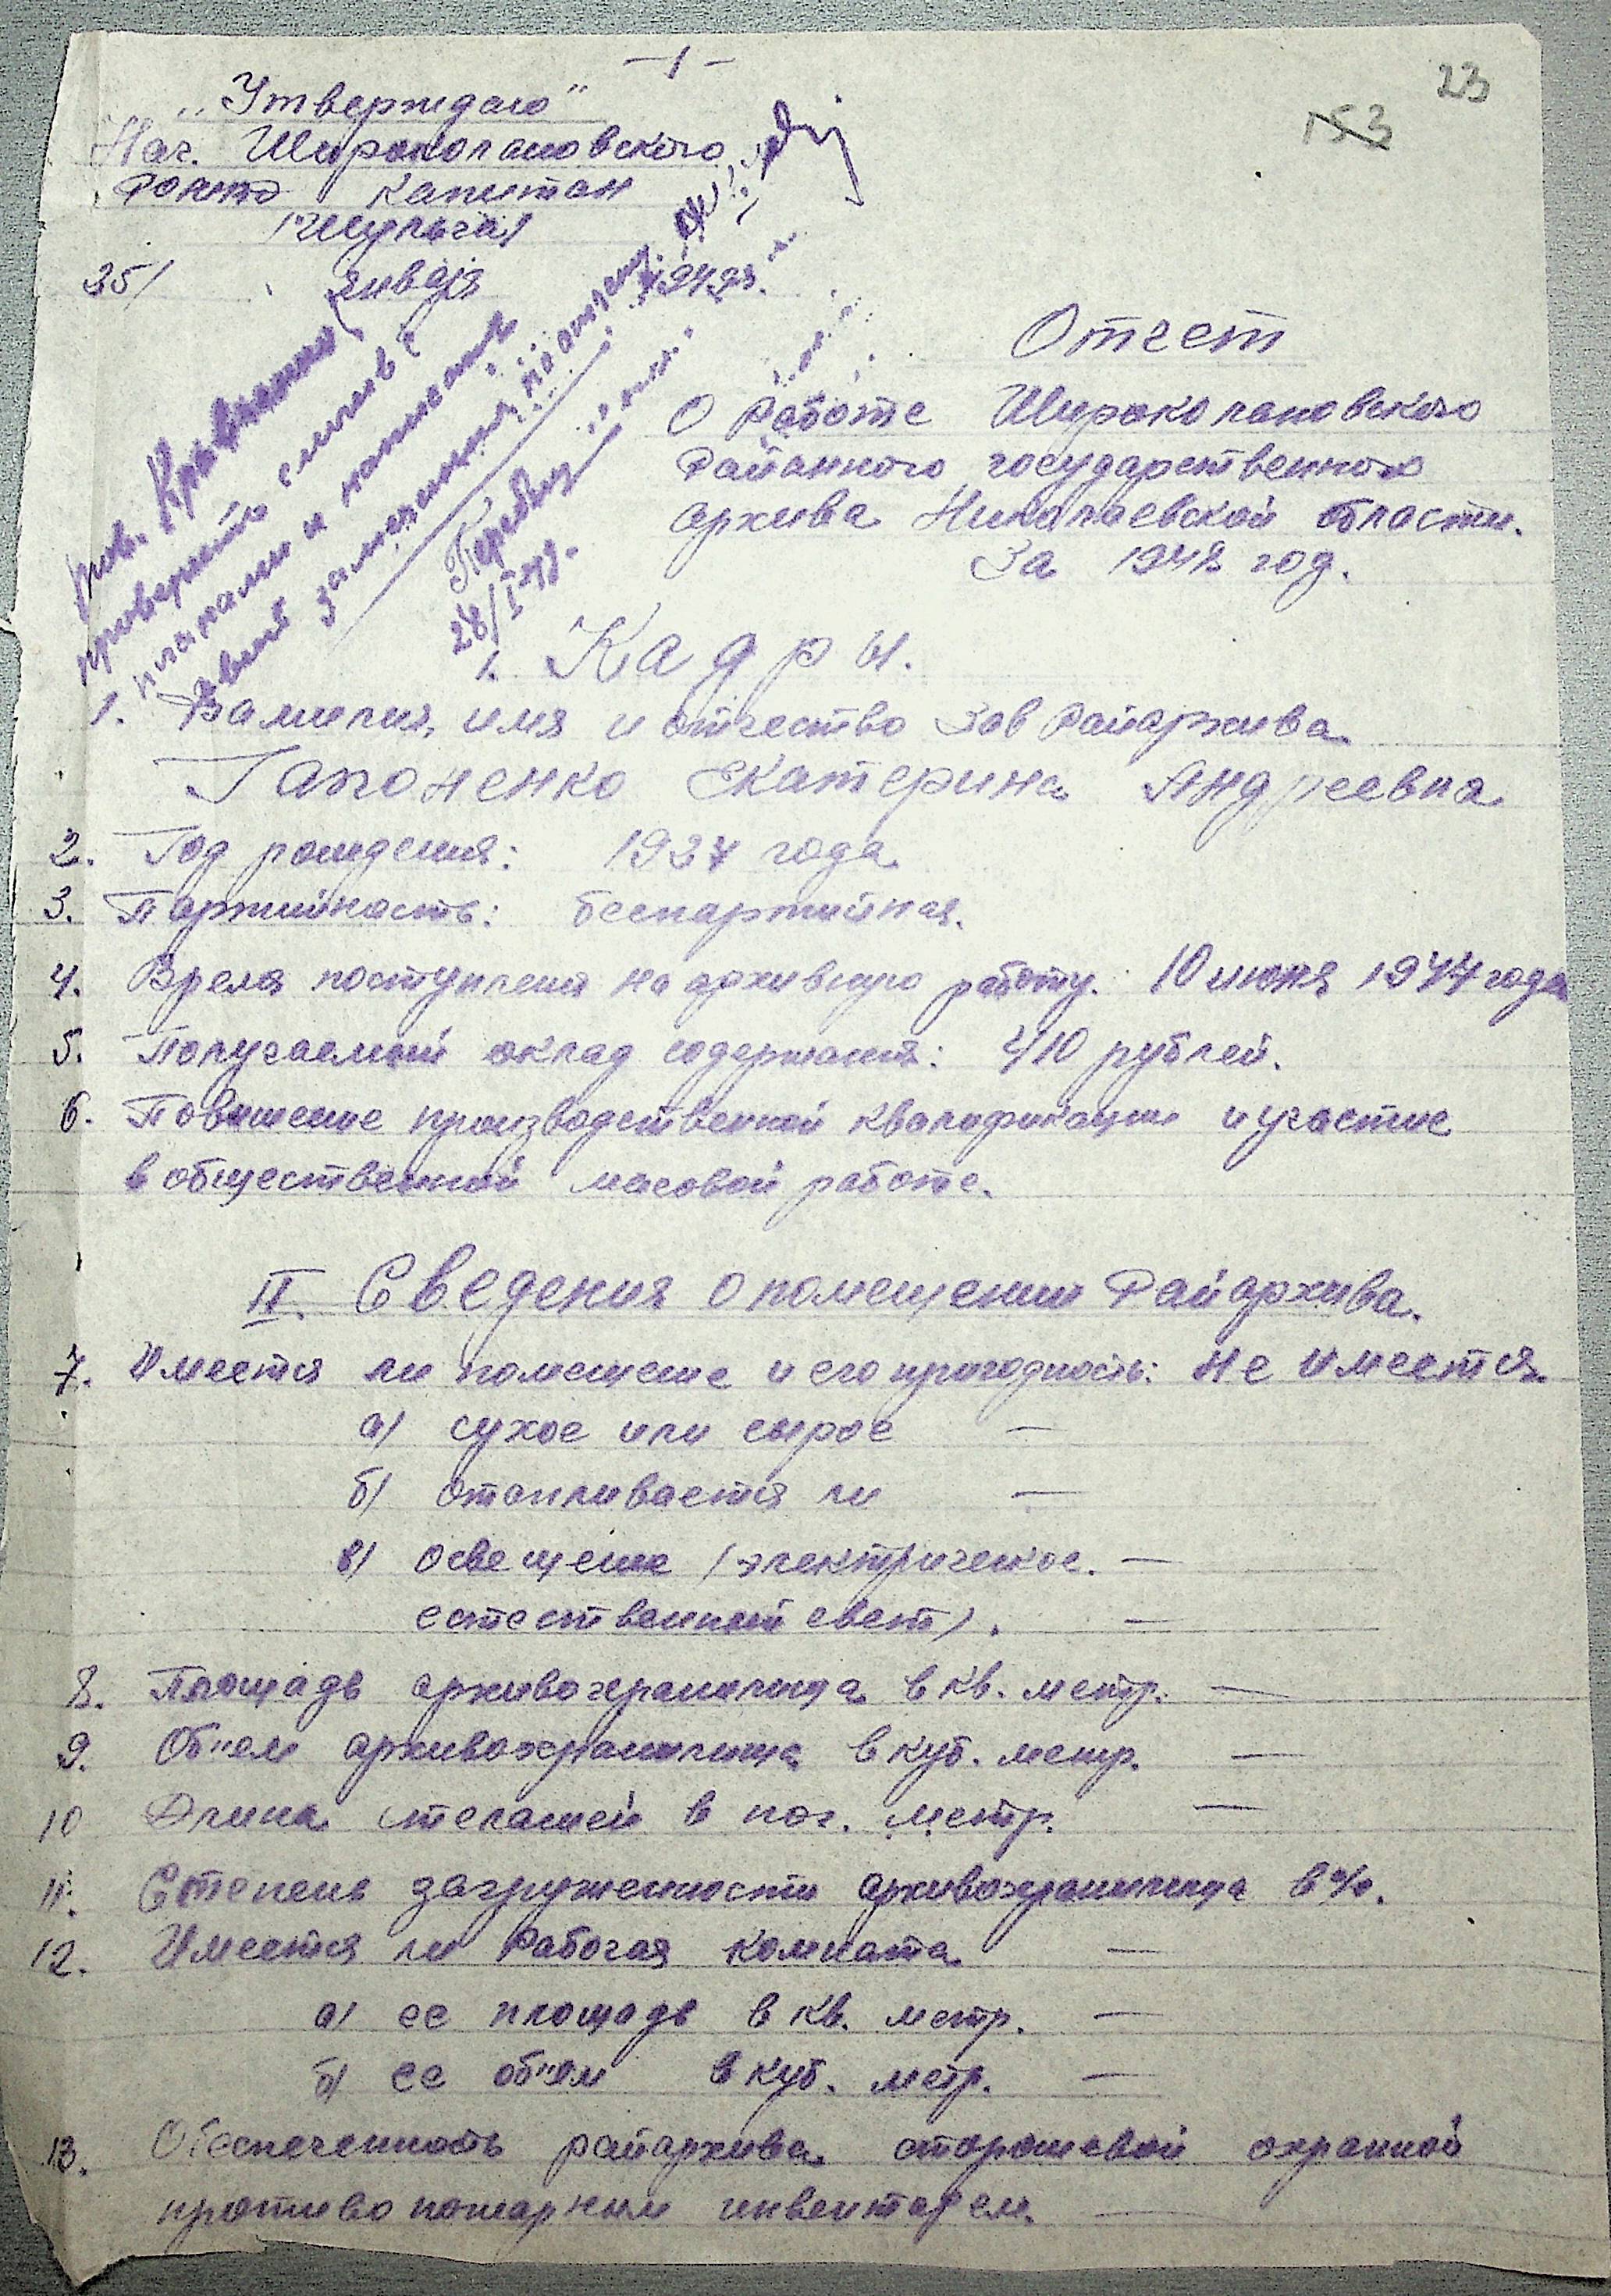 — 1 —
23
153
„Утверждаю"
Нач. Широколановского
Райотд. капитан
/Шульга/
25/ января 1949г.
тов. Кравченко
проверить сличив с
планами и написать
свои замечания по отчету
28/I 49г.
Отчет
О Работе Широколановского
Районного государственного
архива Николаевской области.
За 1948 год.
1. Кадры.
1. Фамилия, имя и отчество Зав Райархива
Гапоненко Екатерина Андреевна
2. Год рождения: 1927 года
3. Партийность: беспартийная.
4. Время поступления на архивную работу: 10 июня 1944 года
5. Получаемый оклад содержания: 410 рублей.
6. Повышение производственной квалификации и участие
в общественной масовой работе.
II. Сведения о помещении Райархива.
7. Имеется ли помещение и его пригодность: Не имеется
а) сухое или сырое —
б) отапливается ли —
в) освещение (электрическое. —
естественный свет). —
8. Площадь архивохранилища в кв. метр. —
9. Об"ем архивохранилища в куб. метр. —
10 Длина стелажей в пог. метр. —
11. Степень загруженности архивохранилища в %.
12. Имеется ли Рабочая комната —
а) ее площадь в кв. метр. —
б) ее об"ем в куб. метр. —
13. Обеспеченность райархива сторожевой охранной
противопожарным инвентарем —